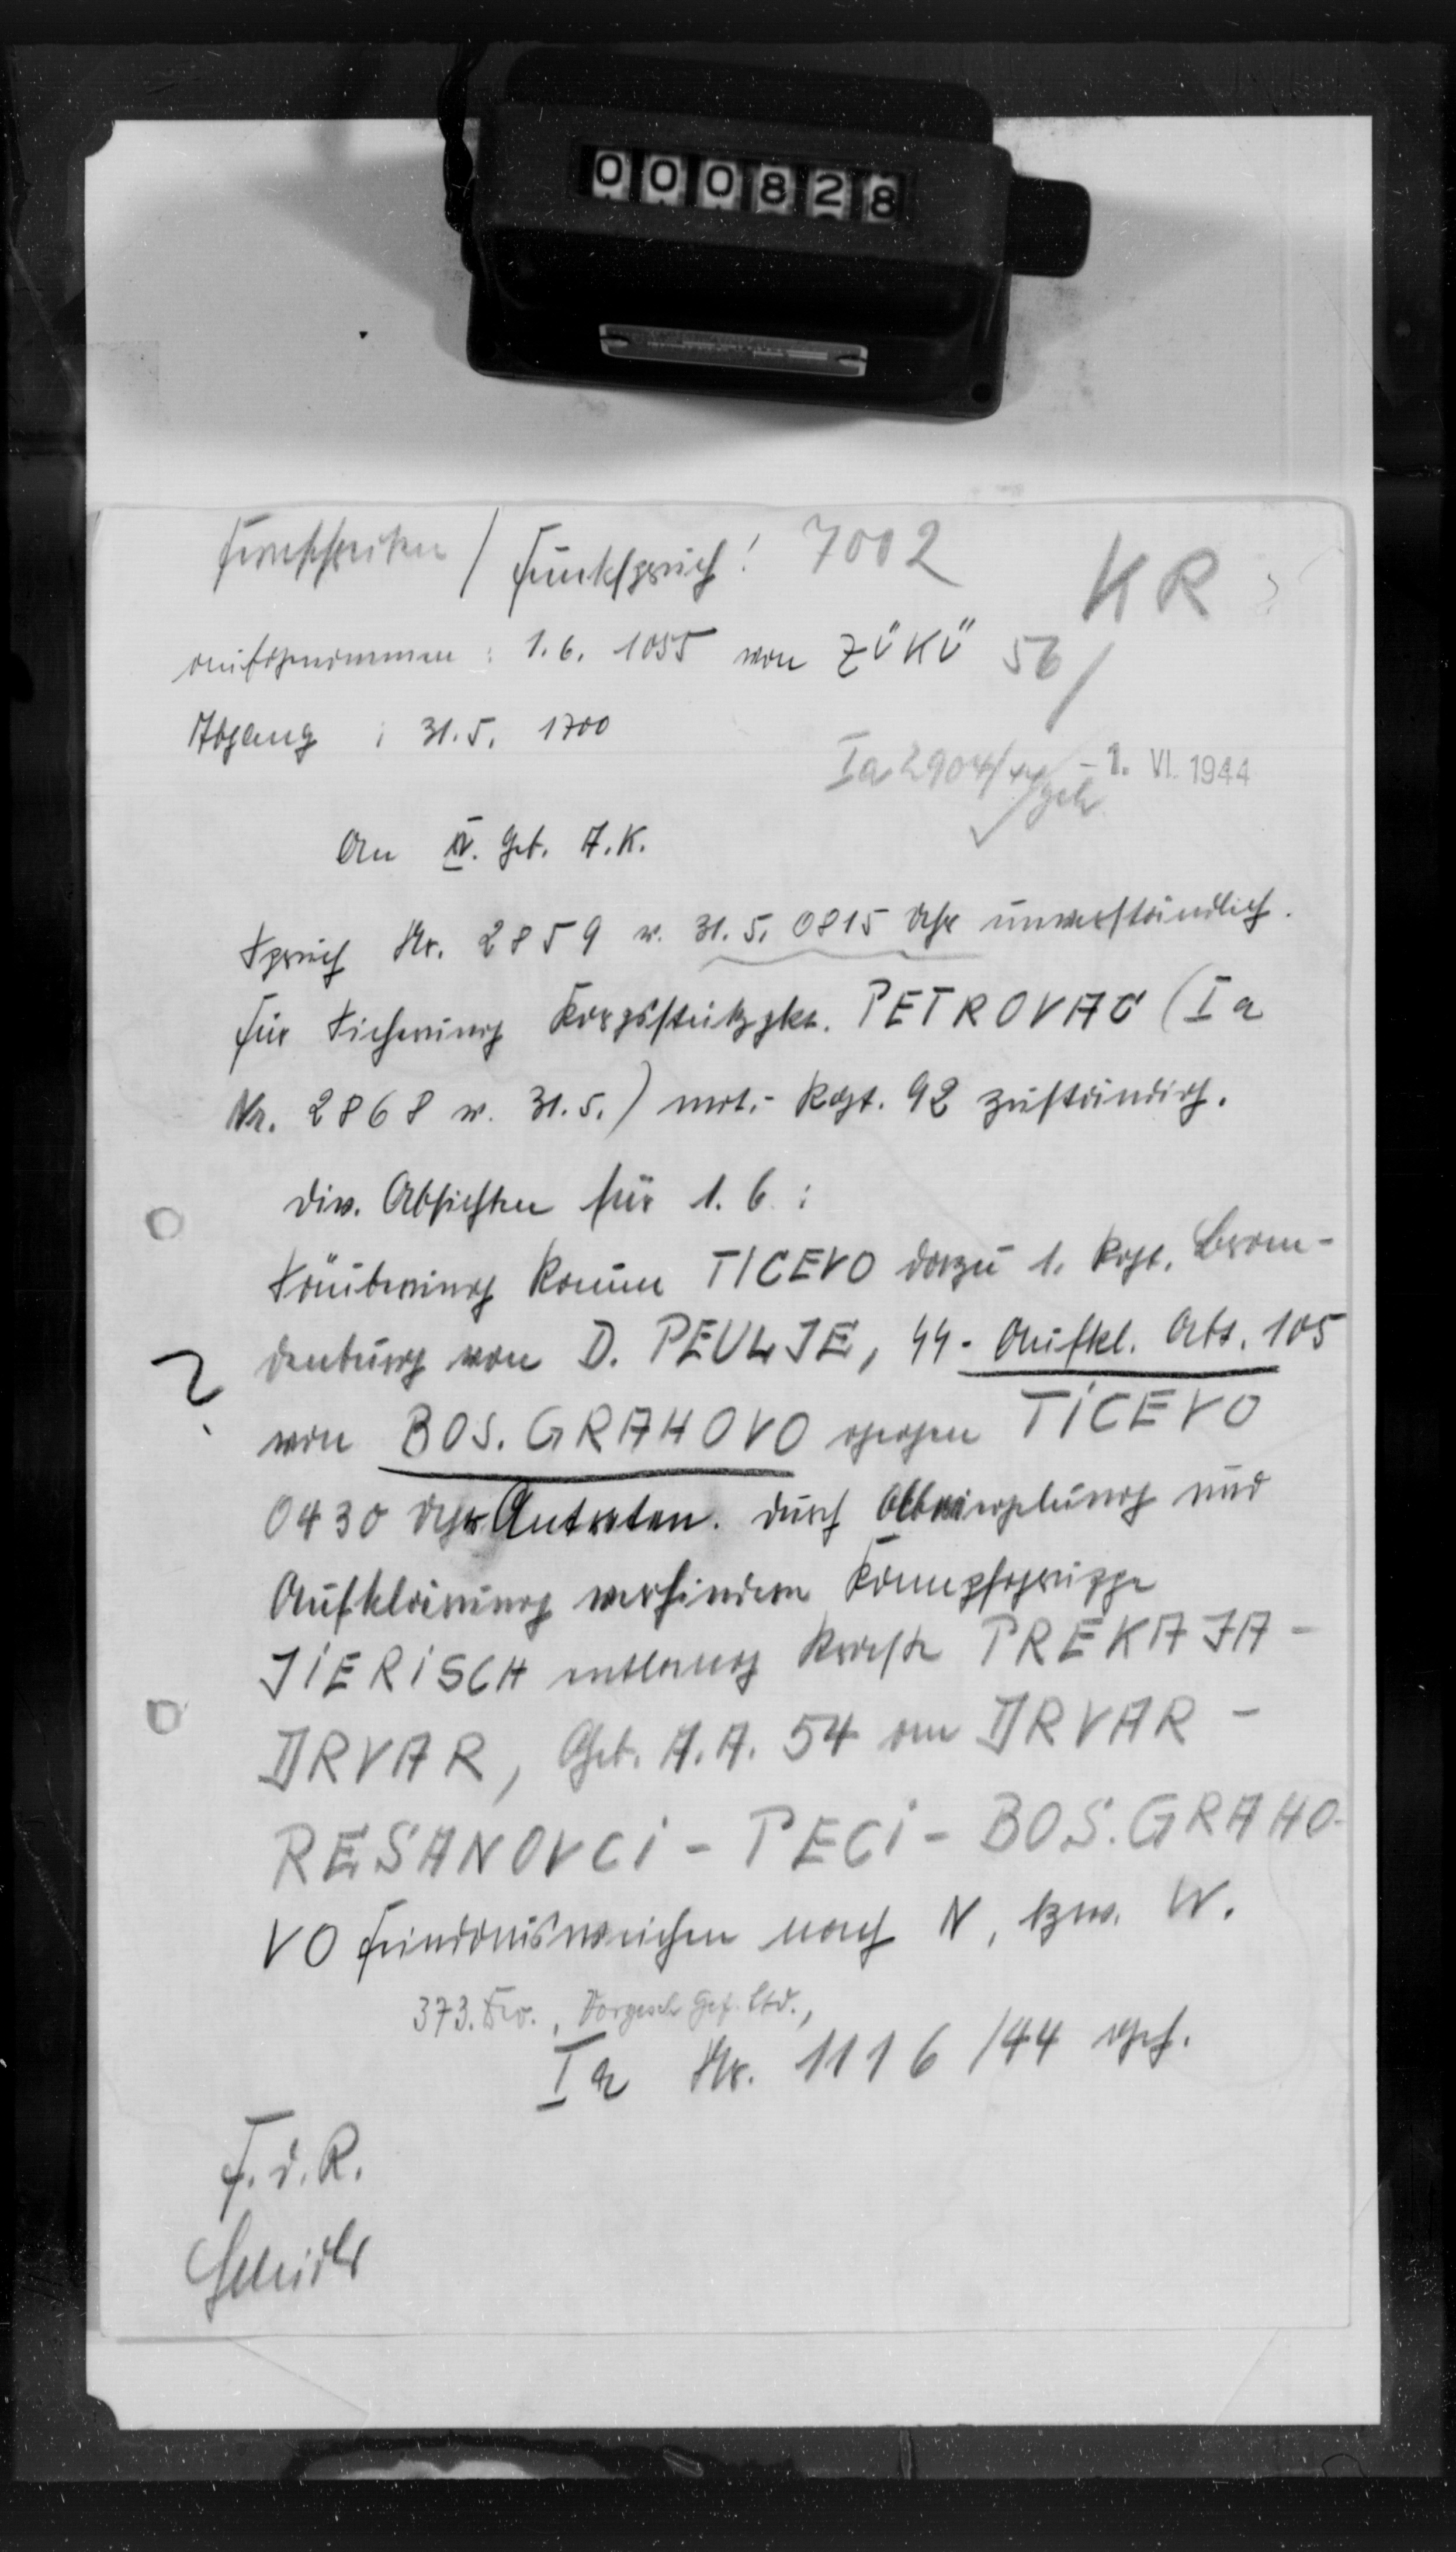 000828
Fernschreiben / Funkspruch! 7002
KR
aufgenommen : 1.6. 1055 von ZÜKÜ 56/
Abgang : 31.5. 1700
Ia 2904/44 geh
-1. VI. 1944
An V. Geb. A.K.
Spruch Nr. 2859 v. 31.5. 0815 Uhr unverständlich.
Für Sicherung Korpsstützpkt. PETROVAC (Ia
Nr. 2868 v. 31.5.) mot.- Rgt. 92 zuständig.
Div. Absichten für 1.6.:
Säuberung Raum TICEVO dazu 1. Rgt. Bran-
denburg von D. PEULJE, SS- Aufkl. Abt. 105
?
von BOS. GRAHOVO gegen TICEVO
0430 Uhr Antreten. Durch Abriegelung und
Aufklärung verhindern Kampfgruppe
JIERISCH entlang Straße PREKAJA -
DRVAR, Geb. A.A. 54 am DRVAR -
RESANOVCI - PECI - BOS. GRAHO-
VO Feindausweichen nach N, bzw. W.
373. Div.,
Ia Nr. 1116 /44 geh.
F.d.R.